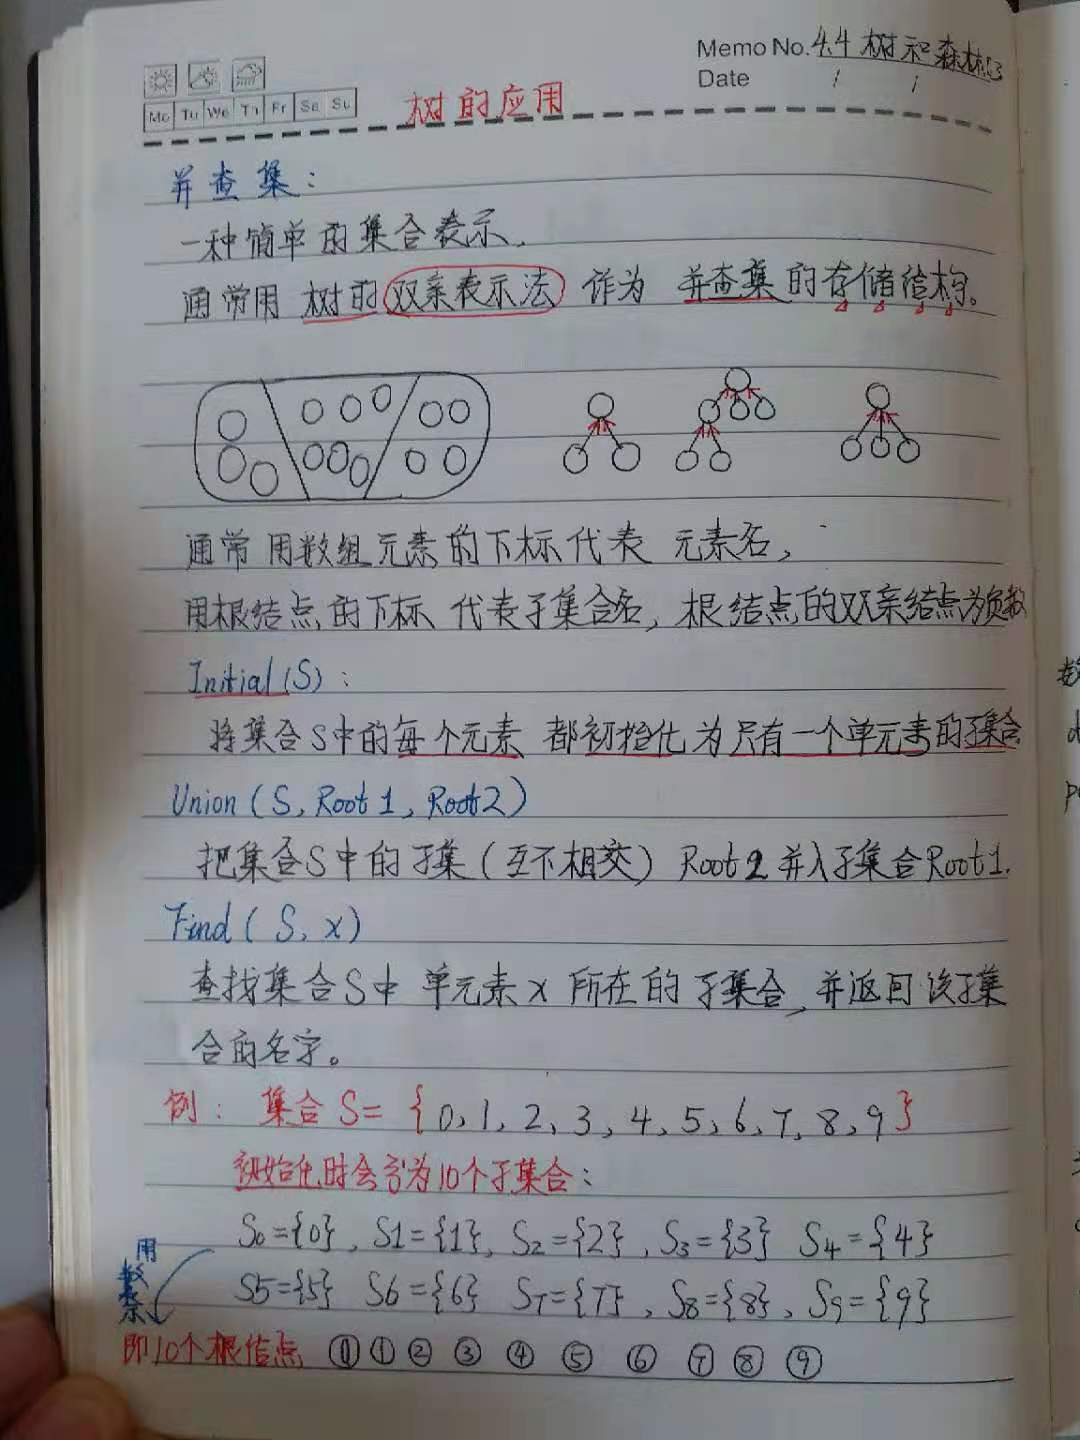 Memo No. 4.4 树和森林
Date / /
Mo Tu We Th Fr Sa Su
树的应用
并查集：
一种简单的集合表示.
通常用 树的双亲表示法 作为 并查集的存储结构。
通常用数组元素的下标代表 元素名，
用根结点的下标 代表子集合名，根结点的双亲结点为负数
Initial(S)：
将集合S中的每个元素 都初始化为只有一个单元素的子集合
Union(S, Root1, Root2)
把集合S中的子集(互不相交) Root2并入子集合Root1.
Find(S, x)
查找集合S中 单元素x所在的子集合，并返回该子集
合的名字。
例： 集合S={0, 1, 2, 3, 4, 5, 6, 7, 8, 9}
初始化时会分为10个子集合：
S0={0}, S1={1}, S2={2}, S3={3} S4={4}
S5={5} S6={6} S7={7}, S8={8}, S9={9}
即10个根结点 ⓪ ① ② ③ ④ ⑤ ⑥ ⑦ ⑧ ⑨